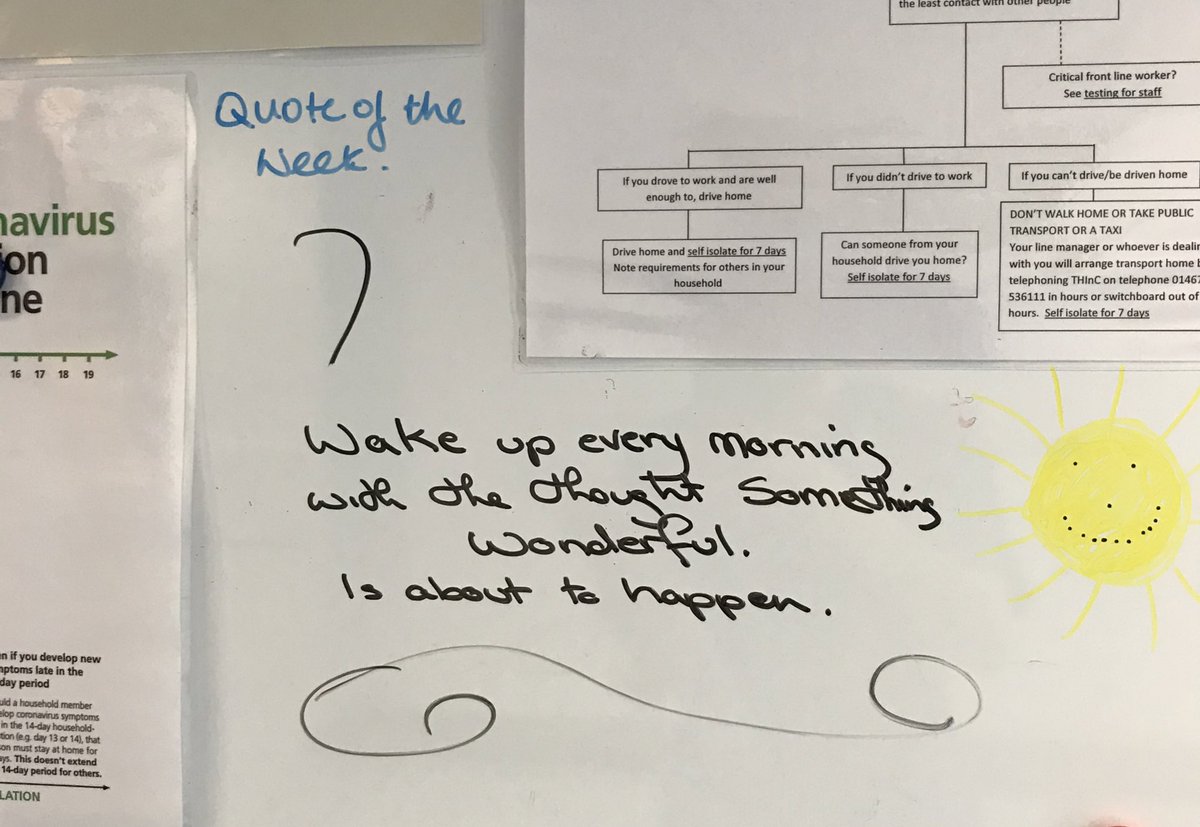 Quote of the
Week.
Wake up every morning
with the thought Something
Wonderful.
Is about to happen.
the least contact with other people
Critical front line worker?
See testing for staff
If you drove to work and are well
enough to, drive home
If you didn't drive to work
If you can't drive/be driven home
Drive home and self isolate for 7 days
Note requirements for others in your
household
Can someone from your
household drive you home?
Self isolate for 7 days
DON'T WALK HOME OR TAKE PUBLIC
TRANSPORT OR A TAXI
Your line manager or whoever is
with you will arrange transport home
telephoning THInC on telephone 01467
536111 in hours or switchboard out of
hours. Self isolate for 7 days
navirus
ion
ne
16 17 18 19
if you develop new
late in the
day period
a household member
coronavirus symptoms
in the 14-day household-
(e.g. day 13 or 14), that
must stay at home for
This doesn't extend
14-day period for others.
LATION